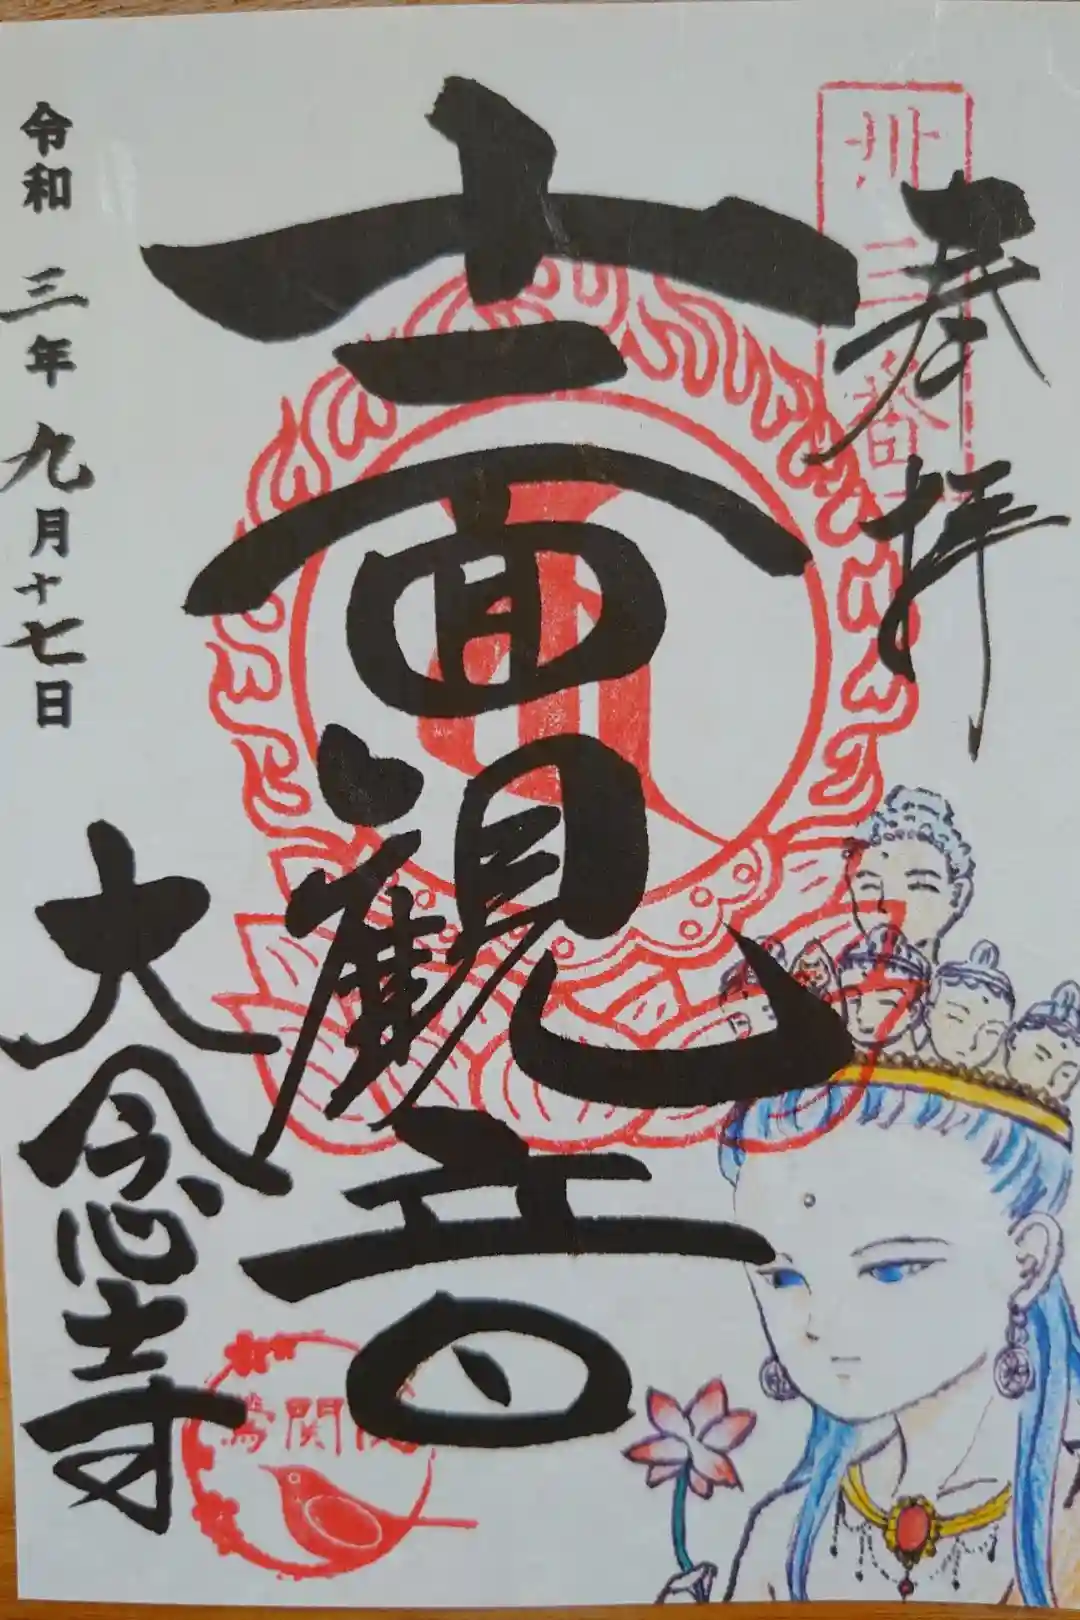 奉拝
卅三番
十一面観音
令和 三年 九月十七日
大念寺
鶯関院